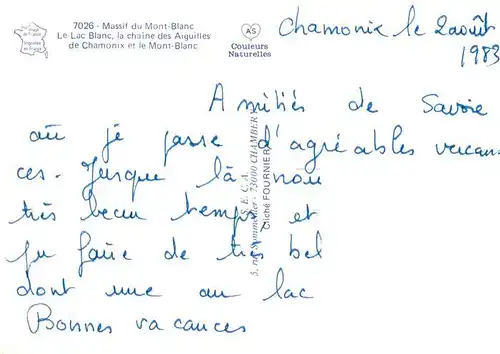 7026 - Massif du Mont-Blanc
Le Lac Blanc, la chaîne des Aiguilles
de Chamonix et le Mont-Blanc
Couleurs
Naturelles
Chamonix le 2 août
1983
Amitiés de Savoie
où je passe d'agréables vacan-
ces. Jusque là nous
très beau temps et
pu faire de très bel
dont une au lac
Bonnes vacances
S.E.C.A.
73000 CHAMBERY
Cliché FOURNIER